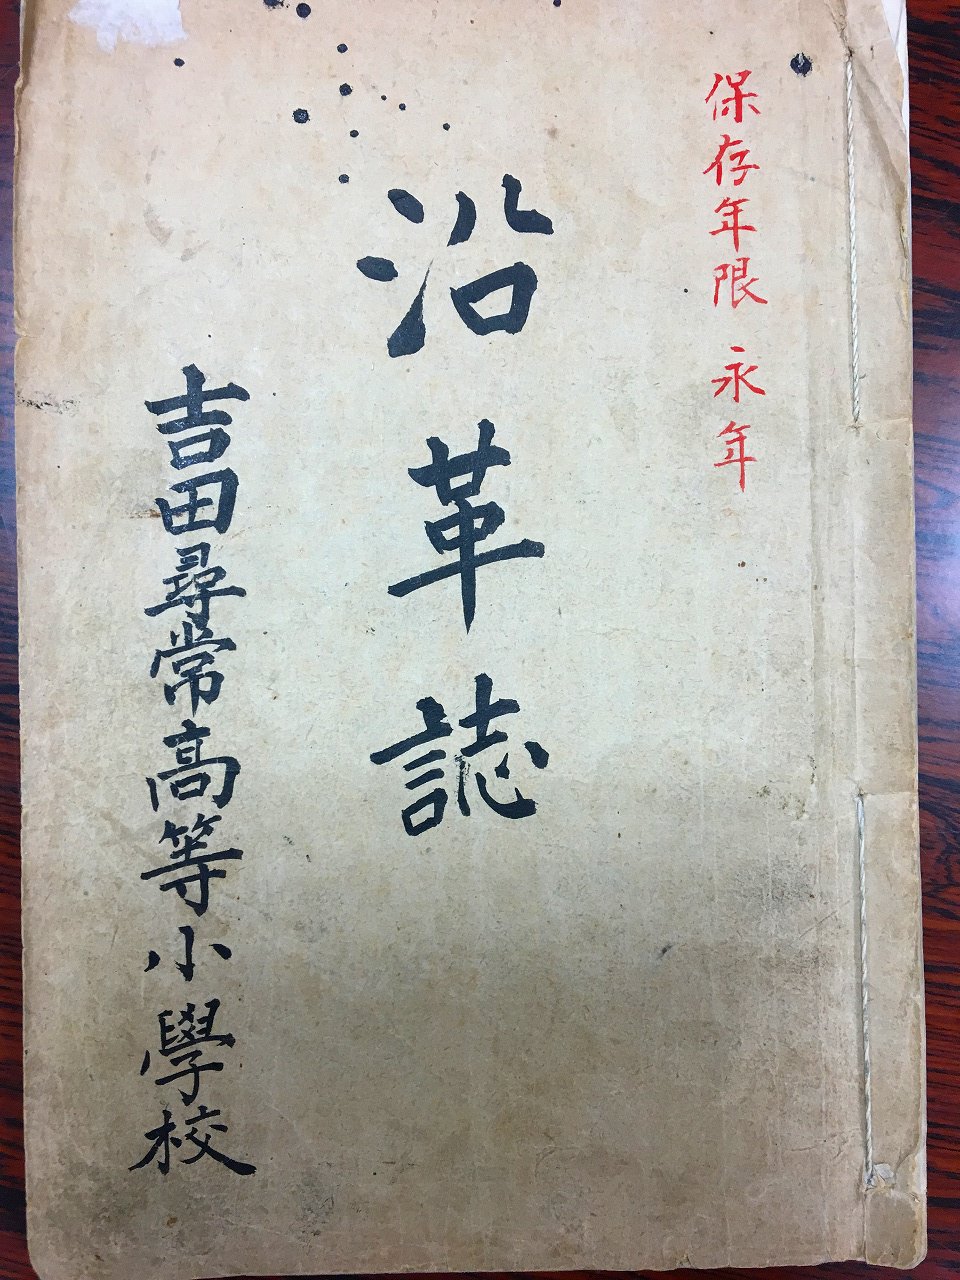 保存年限 永年
沿革誌
吉田尋常高等小學校